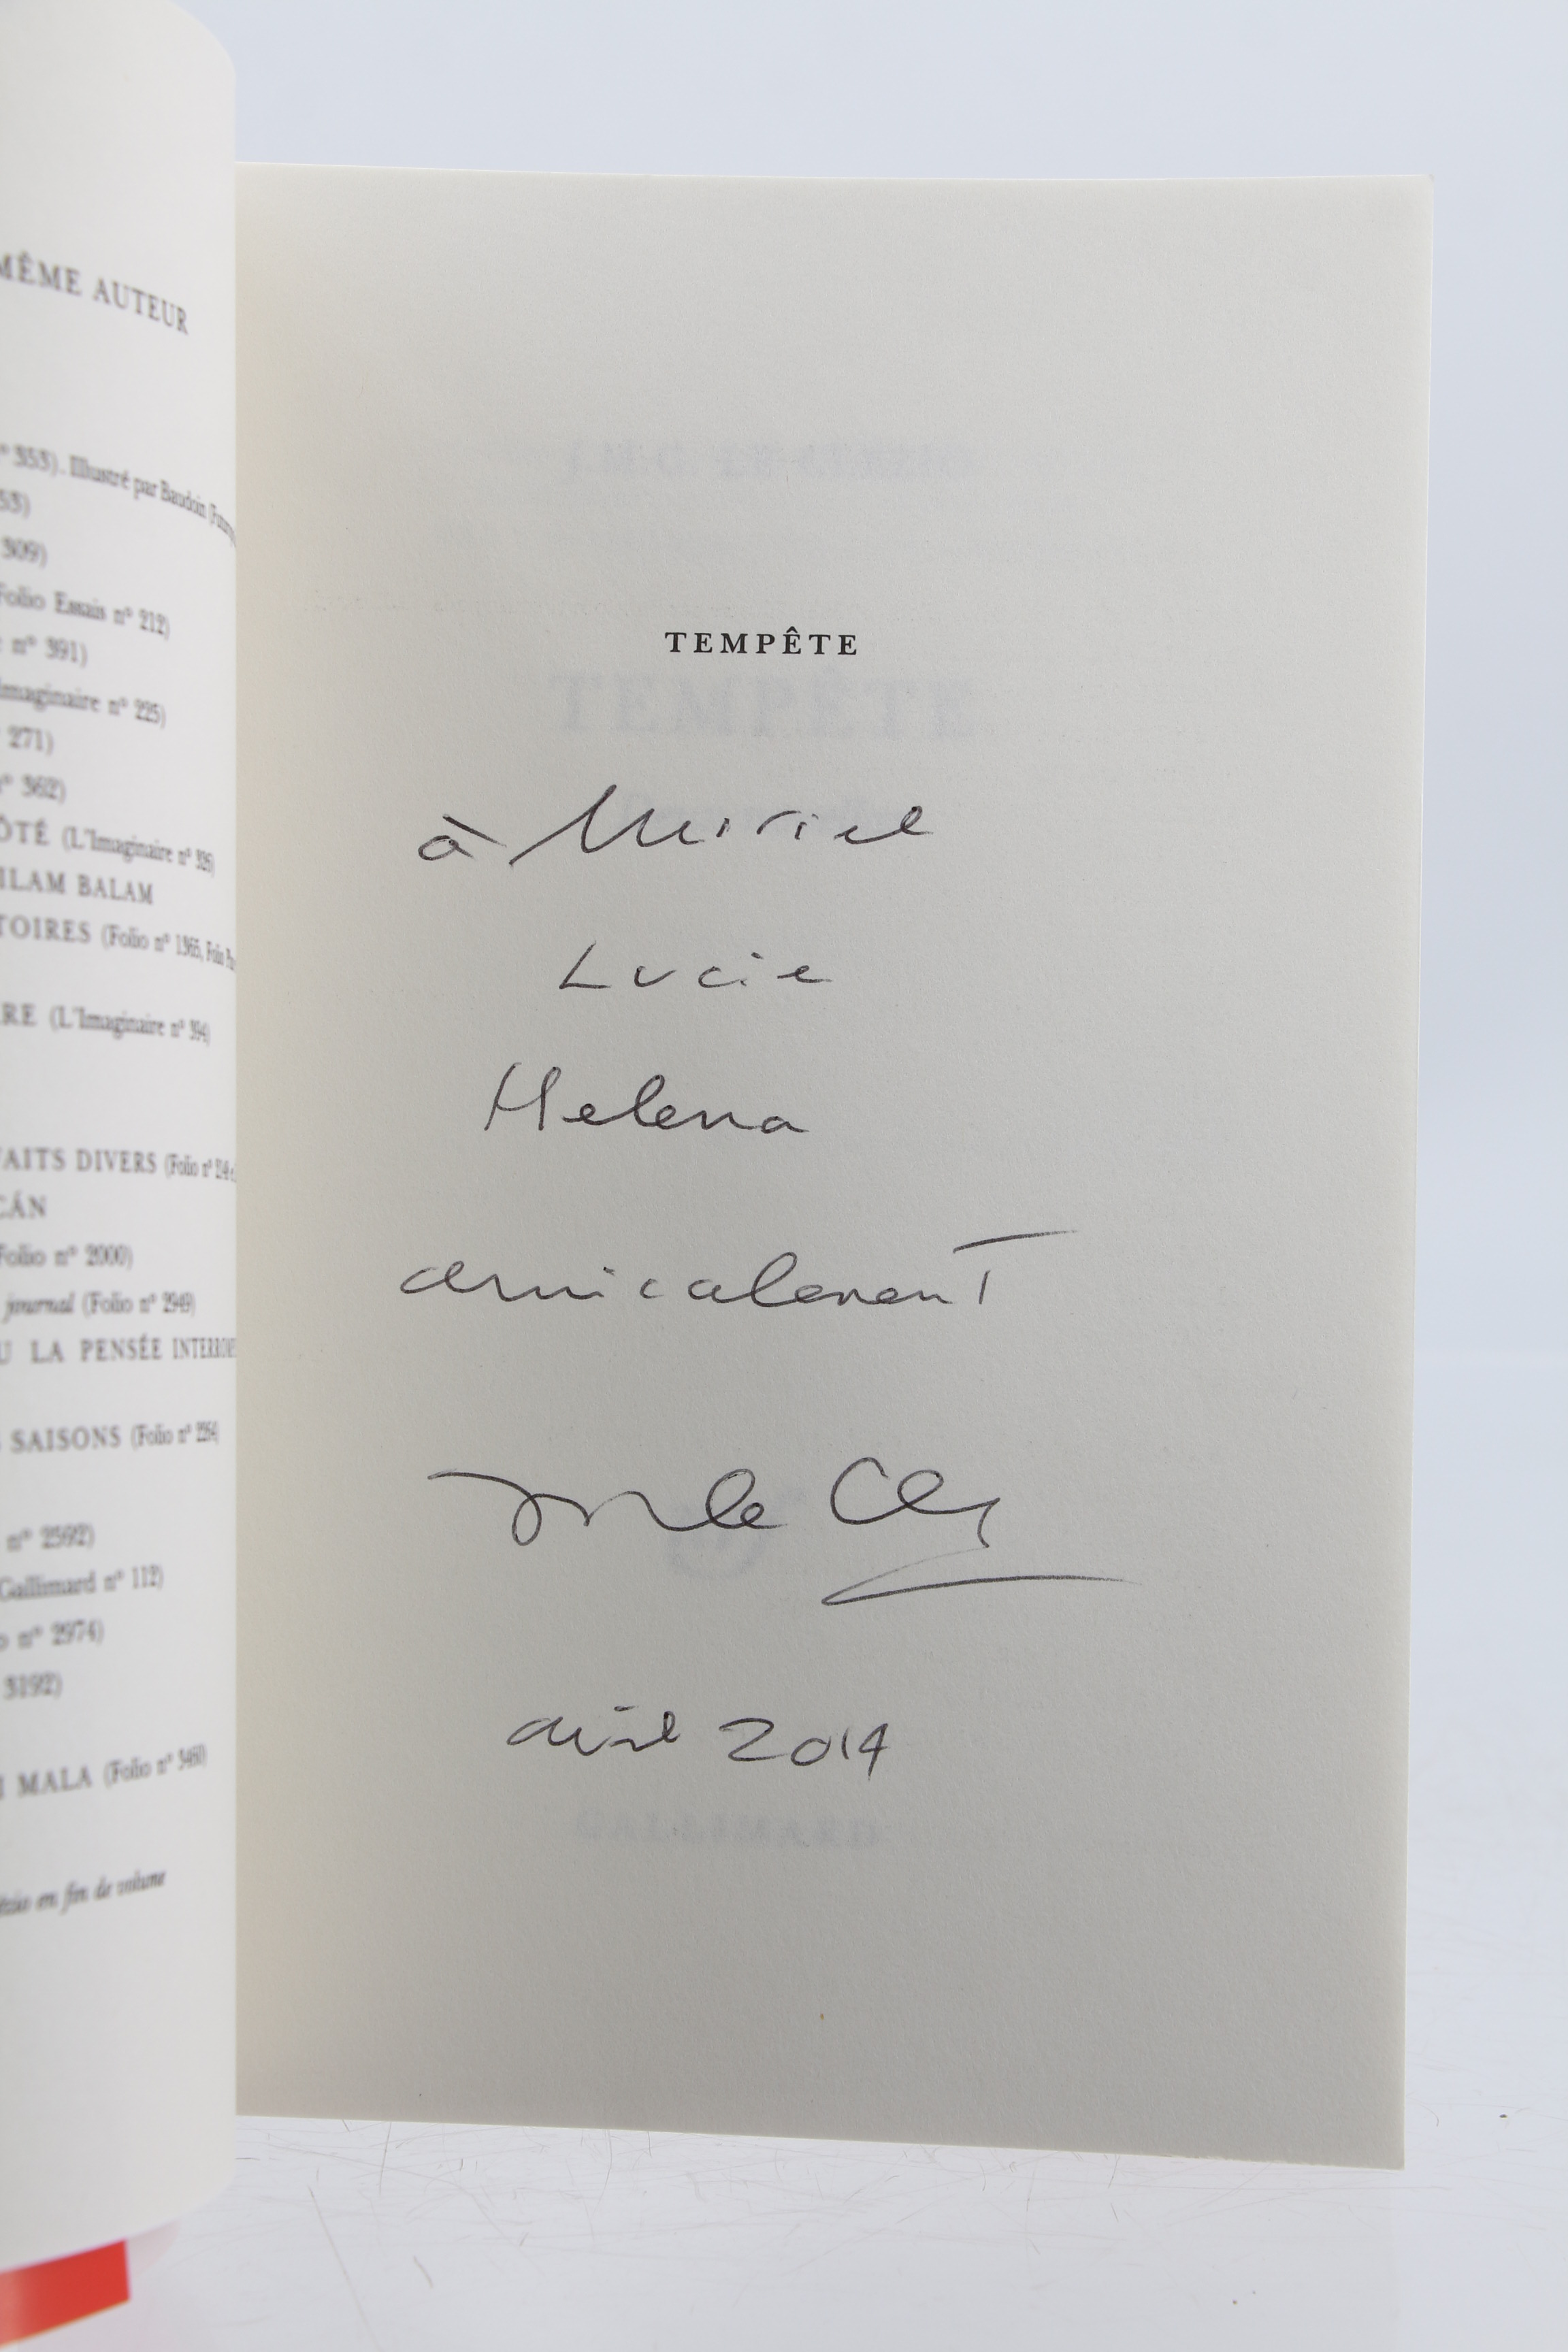 MÊME AUTEUR
n° 353). Illustré par Baudoin
53)
309)
Folio Essais n° 212)
n° 391)
Imaginaire n° 225)
271)
n° 362)
ÔTÉ (L'Imaginaire n° 326)
ILAM BALAM
TOIRES (Folio n° 1365,
RE (L'Imaginaire n° 394)
FAITS DIVERS (Folio n°
CÁN
Folio n° 2000)
journal (Folio n° 2949)
U LA PENSÉE
SAISONS (Folio n° 2254)
n° 2592)
Gallimard n° 112)
n° 2974)
3192)
MALA (Folio n° 3460)
en fin de volume
TEMPÊTE
TEMPÊTE
à Muriel
Lucie
Helena
amicalement
avril 2014
GALLIMARD